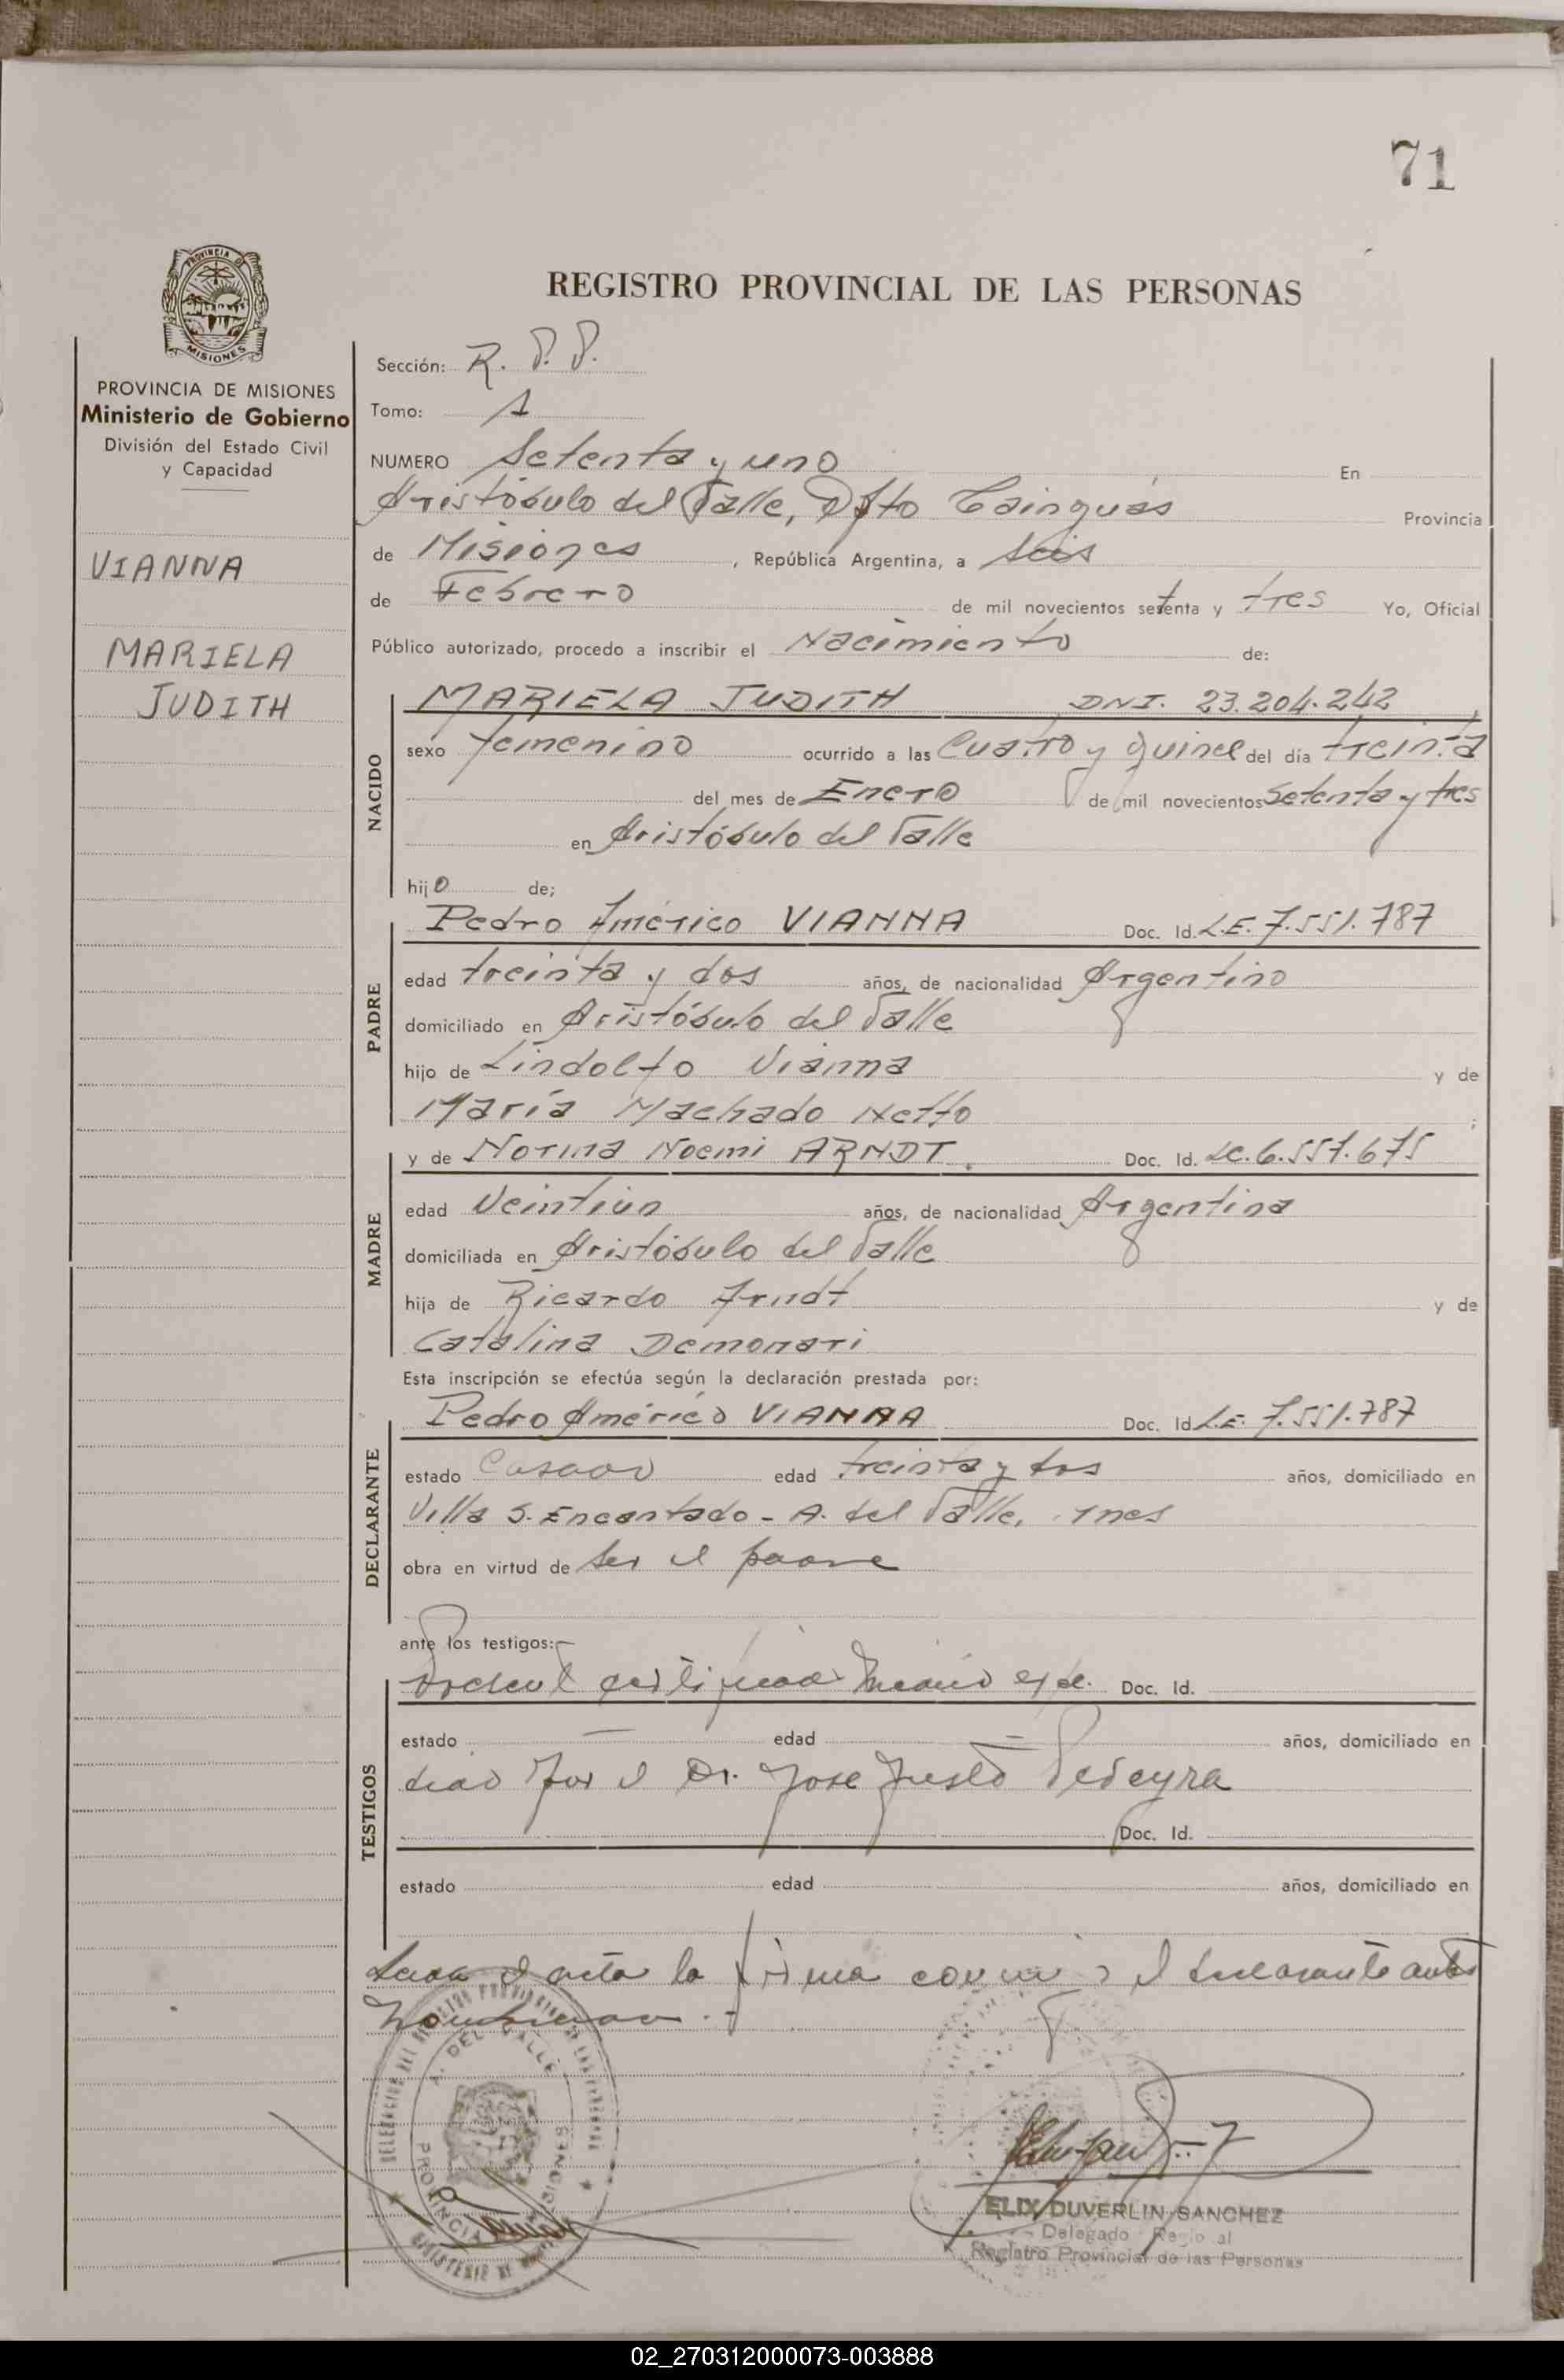 71
PROVINCIA DE
MISIONES
PROVINCIA DE MISIONES
Ministerio de Gobierno
División del Estado Civil
y Capacidad
VIANNA
MARIELA
JUDITH
REGISTRO PROVINCIAL DE LAS PERSONAS
Sección: R. P. P.
Tomo: 1
NUMERO Setenta y uno En
Aristóbulo del Valle, Dpto Cainguás Provincia
de Misiones, República Argentina, a seis
de Febrero de mil novecientos setenta y tres Yo, Oficial
Público autorizado, procedo a inscribir el Nacimiento de:
NACIDO
MARIELA JUDITH DNI. 23.204.242
sexo femenino ocurrido a las Cuatro y quince del día treinta
del mes de Enero de mil novecientos Setenta y tres
en Aristóbulo del Valle
hijo de;
PADRE
Pedro Américo VIANNA Doc. Id. L.E. 7.551.787
edad treinta y dos años, de nacionalidad Argentino
domiciliado en Aristóbulo del Valle
hijo de Lindolfo Vianna y de
María Machado Netto ;
MADRE
y de Norma Noemi ARNDT. Doc. Id. LC. 6.557.675
edad Veintiun años, de nacionalidad Argentina
domiciliada en Aristóbulo del Valle
hija de Ricardo Arndt y de
Catalina Demonari
Esta inscripción se efectúa según la declaración prestada por:
DECLARANTE
Pedro Américo VIANNA Doc. Id. L.E. 7.551.787
estado Casado edad treinta y dos años, domiciliado en
Villa S. Encantado - A. del Valle, Mnes
obra en virtud de ser el padre
ante los testigos:
TESTIGOS
certificado Médico expe. Doc. Id.
estado — edad — años, domiciliado en
dido por el Dr. Jose Justo Pereyra
Doc. Id.
estado edad años, domiciliado en
Leida el acta la firma conmigo el declarante antes
nombrado.-
A. DEL VALLE
PROVINCIA MISIONES
ELIX DUVERLIN SANCHEZ
Delegado
Registro Provincial de las Personas
02_270312000073-003888